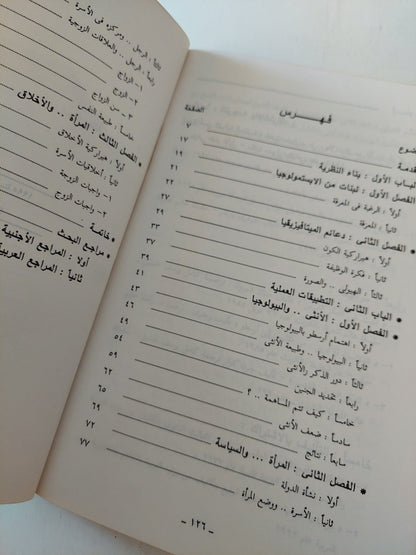 فهـرس
ضوع الصفحة
قدمة ٧
الباب الأول : بناء النظرية ١٧
الفصل الأول : لبنات من الابستمولوجيا ١٩
أولاً : الرغبة فى المعرفة ٢١
ثانياً : المعرفة ٢٢
• الفصل الثانى : دعائم الميتافيزيقيا ٢٧
أولاً : هيراركية الكون ٢٩
ثانياً : فكرة الوظيفة ٣٣
ثالثاً : الهيولى .. والصورة ٣٧
• الباب الثانى : التطبيقات العملية ٣٩
• الفصل الأول : الأنثى .. والبيولوجيا ٤١
أولاً : اهتمام أرسطو بالبيولوجيا ٤٣
ثانياً : البيولوجيا .. وطبيعة الأنثى ٤٦
ثالثاً : دور الذكر والأنثى ٤٩
رابعاً : تحديد الجنين ٥٤
خامساً : كيف تتم المساهمة .. ؟ ٥٩
سادساً : ضعف الأنثى ٦٢
سابعاً : نتائج ٦٥
• الفصل الثانى : المرأة ... والسياسة ٦٩
أولاً : نشأة الدولة ٧٢
ثانياً : الأسرة .. ووضع المرأة ٧٧
- ١٢٦ -
ثالثاً : الرجل .. ومركزه فى الأسرة
رابعاً : الرجل .. والعلاقات الزوجية
١- الزواج
٢- الزوج
٣- سن الزواج
خامساً : طبيعة النفس
• الفصل الثالث : المرأة .. والأخلاق
أولاً : هيراركية الأخلاق
ثانياً : أخلاقيات الأسرة
١- واجبات الزوجة
٢- واجبات الزوج
• خاتمة
• مراجع البحث
أولاً : المراجع الأجنبية
ثانياً : المراجع العربية